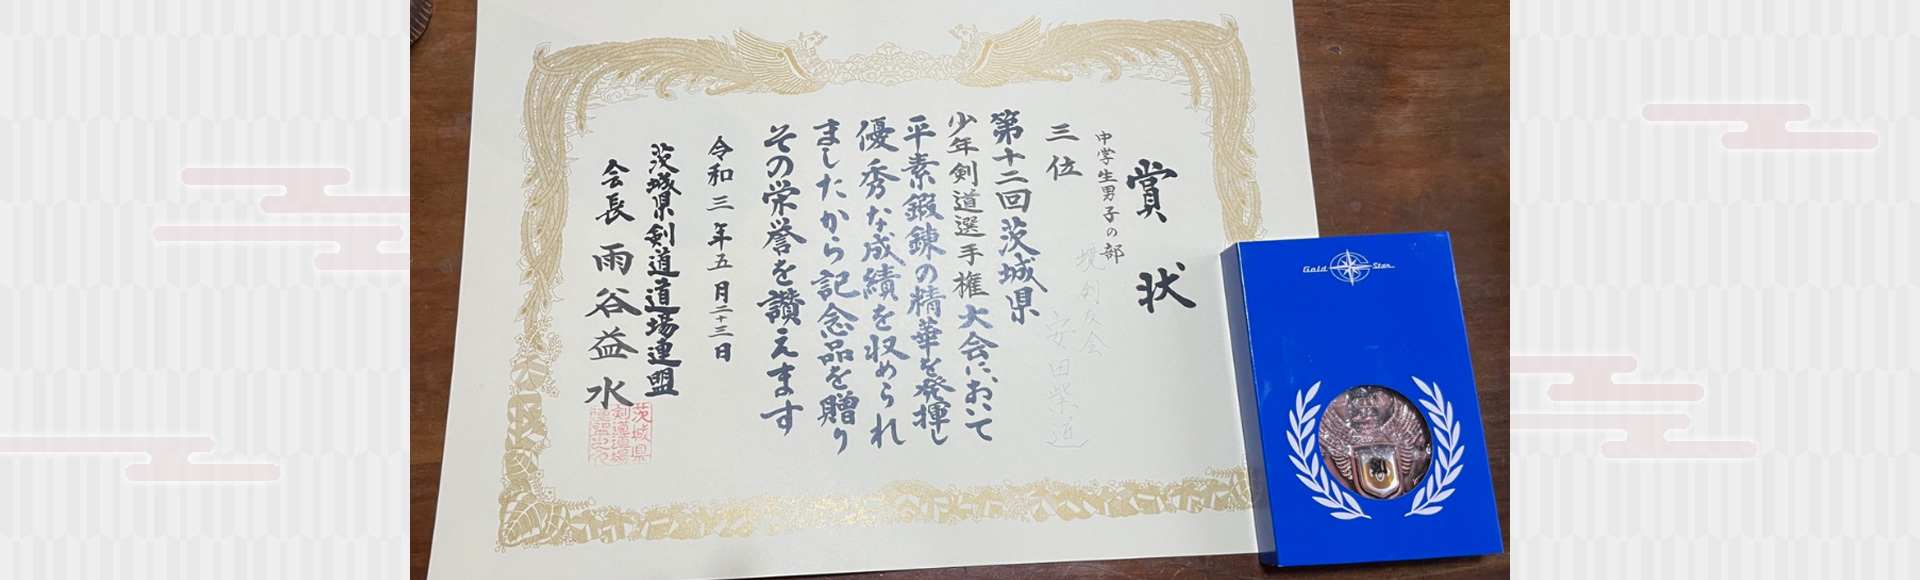 賞状
中学生男子の部
境剣友会
三位
安田紫道
第十二回茨城県
少年剣道選手権大会において
平素鍛錬の精華を発揮し
優秀な成績を収められ
ましたから記念品を贈り
その栄誉を讃えます
令和三年五月二十三日
茨城県剣道道場連盟
会長 雨谷益水
Gold Star
剣